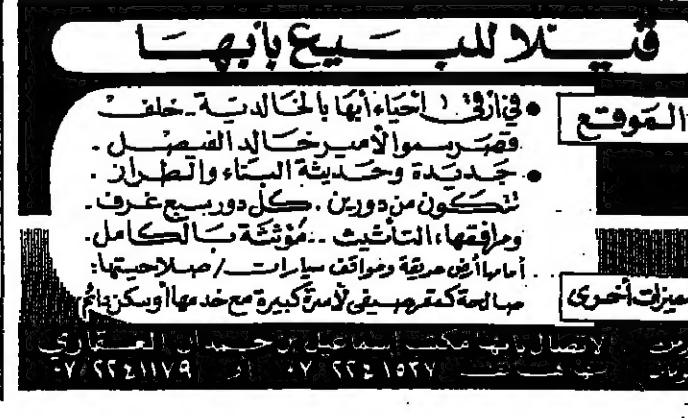 ڤيــلا للبــــيع بأبهــا
الموقع
• في أرقى أحياء أبها بالخالدية - خلف
قصر سمو الأمير خالد الفيصل .
• جديدة وحديثة البناء والطراز .
تتكون من دورين . كل دور سبع غرف .
ومرافقها، التأثيث .. مؤثثة بالكامل .
مميزات أخرى
. أمامها أرض حديقة ومواقف سيارات / صلاحيتها :
صالحة كمقر صيفي لأسرة كبيرة مع خدمها أو سكن دائم
الاتصال بأبها مكتب إسماعيل بن حمدان العقاري
هاتف ٢٢٤١٥٢٧ ٠٧ أو ٢٢٤١١٧٩ ٠٧